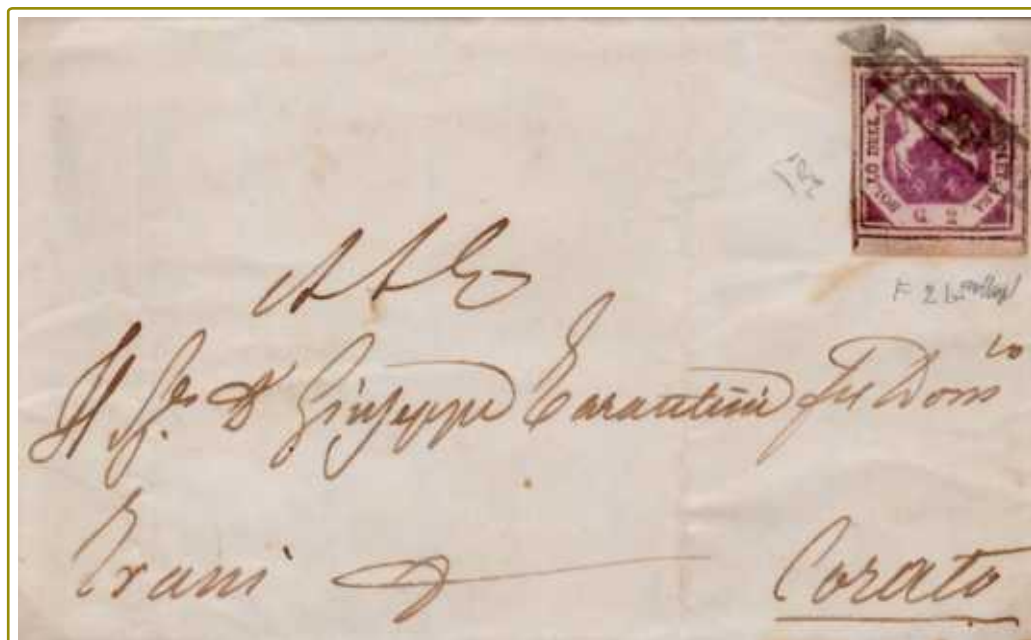 BOLLO DELLA POSTA NAPOLETANA
G 2
Il Sr. D Giuseppe Tarantini fu Dom co
Trani Corato